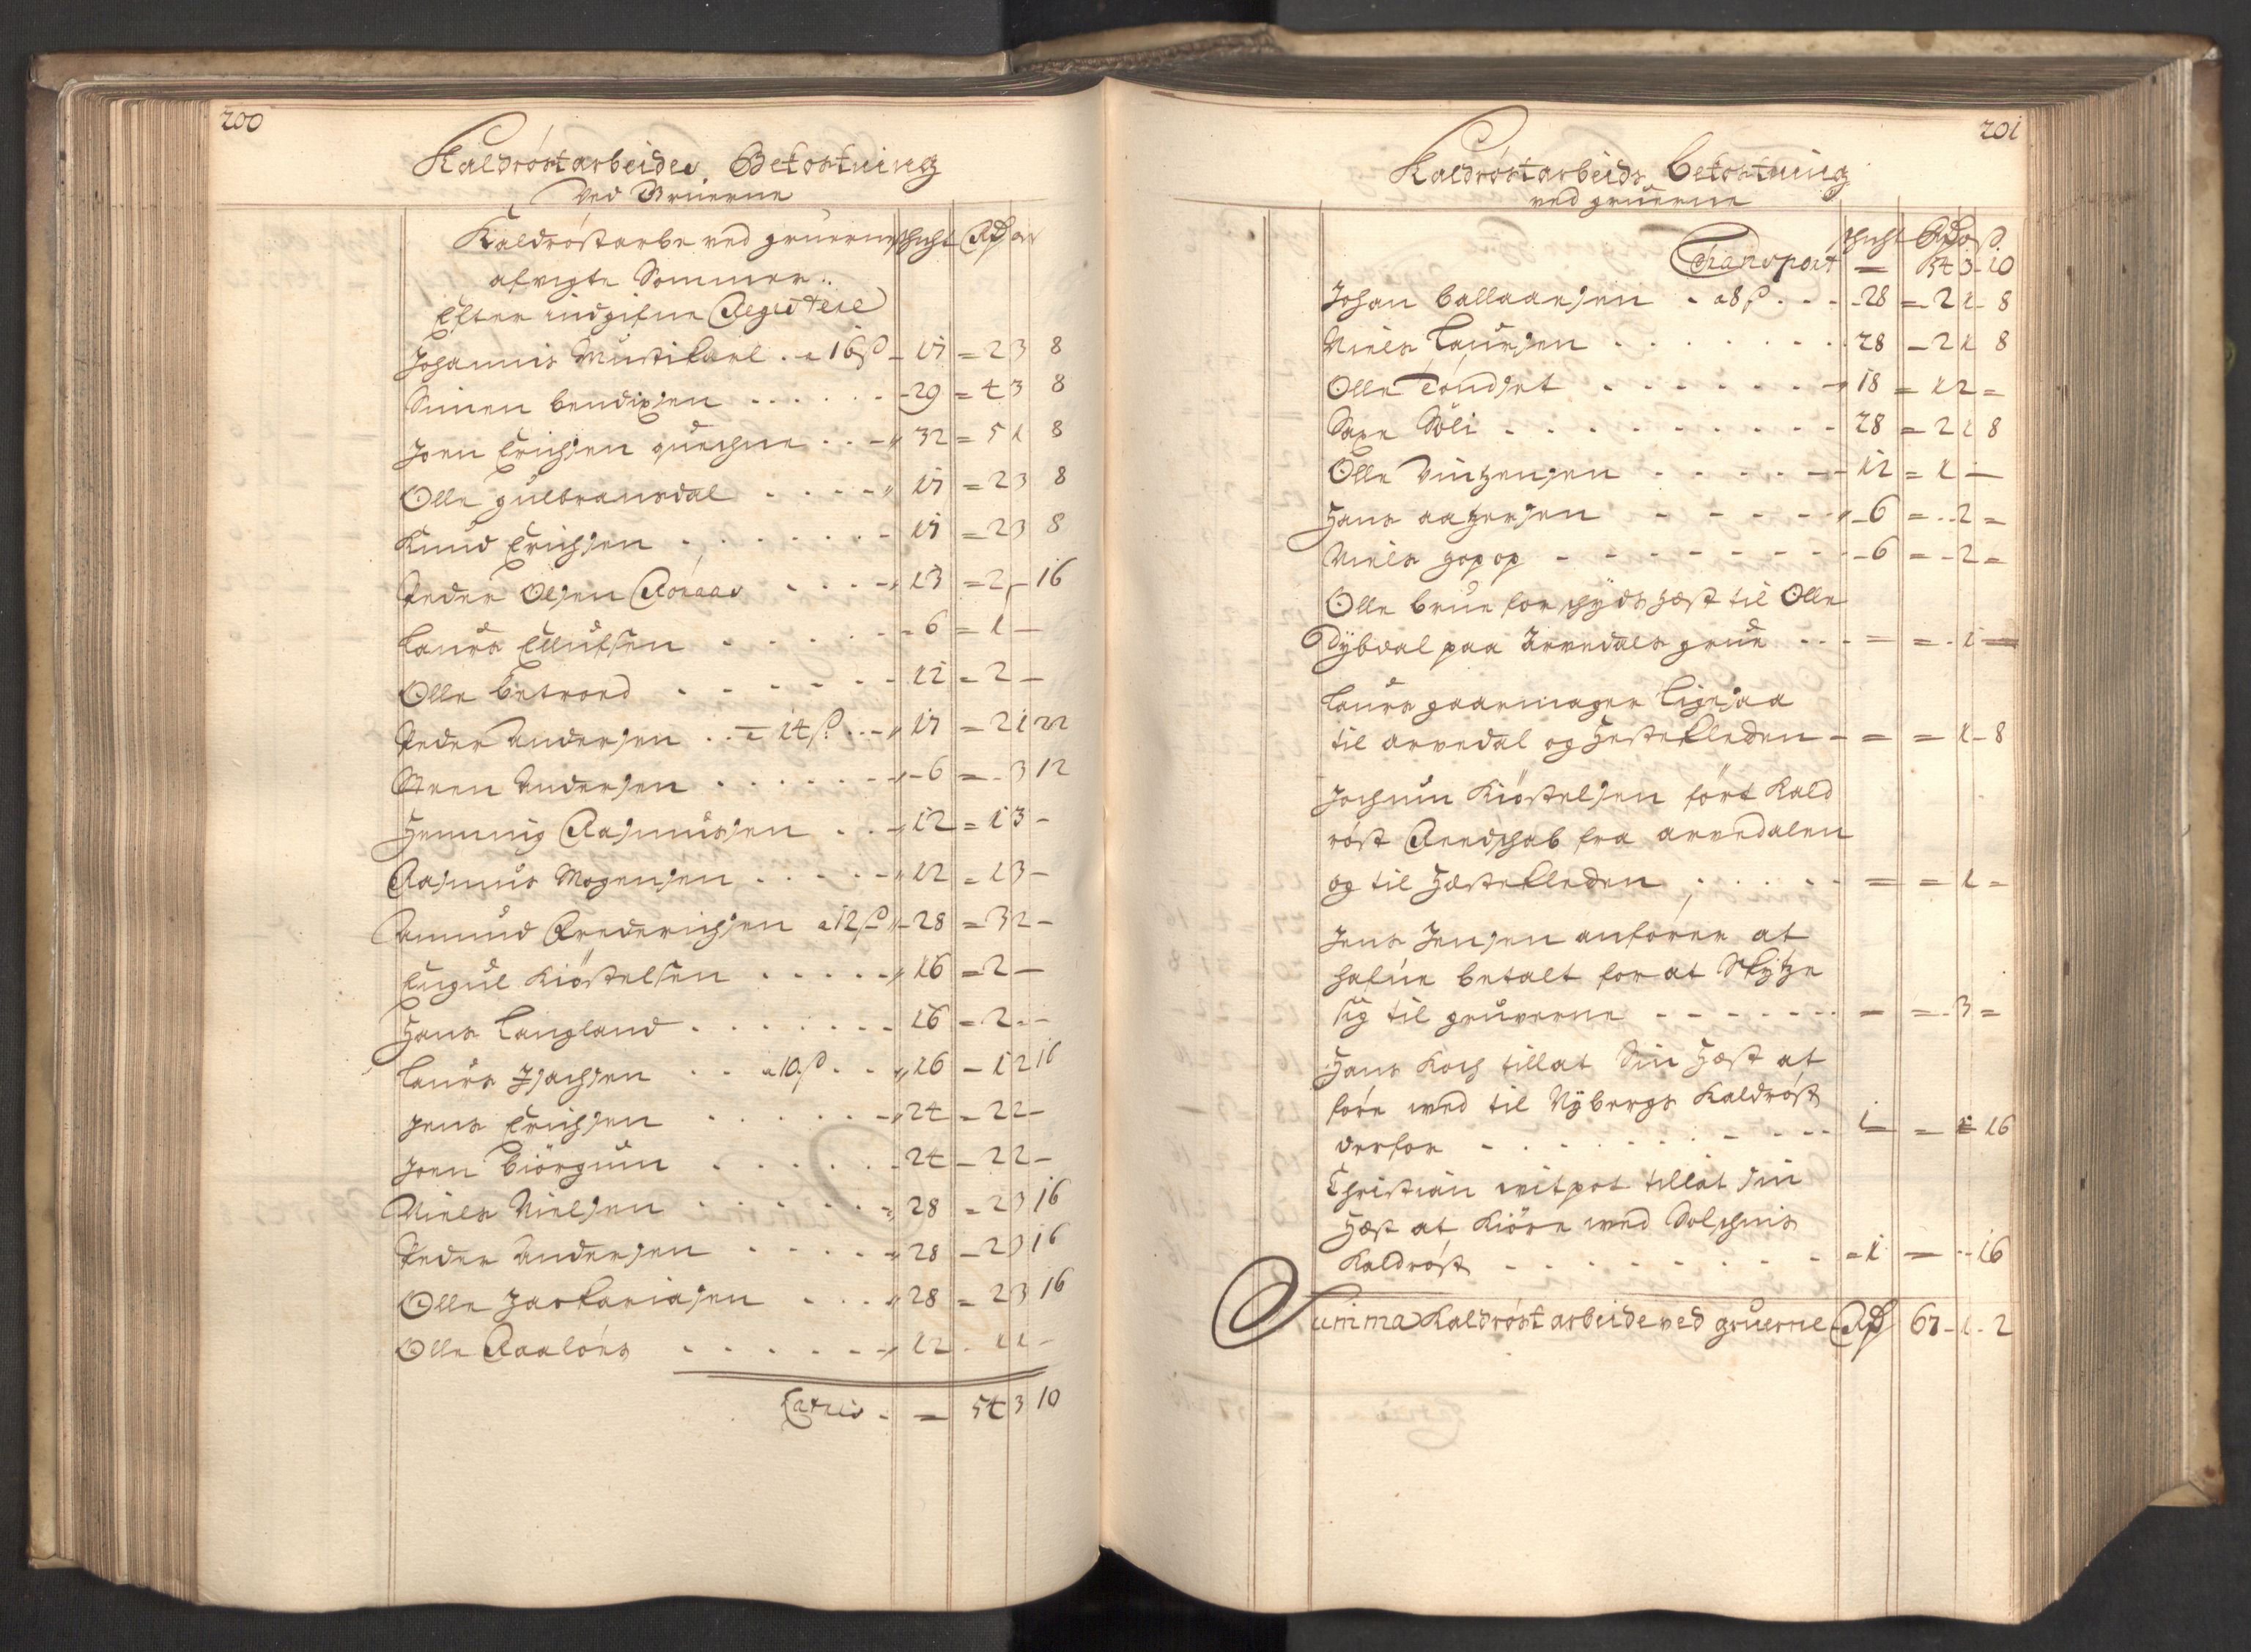 200
Kaldröstarbeides Bekostning
Ved Gruerne
Kaldröstarbe ved gruerne schicht Rdr ort
afvigte Sommer..
Efter indgifne Registere
Johannis Mustikarl . a 16 s - 17 = 2 3 8
Simen bendixsen . . . . . . - 29 = 4 3 8
Joen Erichsen . . - 32 = 5 1 8
Olle gulbransdal . . . . - 17 = 2 3 8
Knud Erichsen . . . . . . . - 17 = 2 3 8
Peder Olsen Röraas . . . . - 13 = 2 - 16
Laurs Ellufsen . . . . . . - 6 = 1 -
Olle betroed . . . . . . - 12 = 2 -
Peder Andersen . . a 14 s . . - 17 = 2 1 22
Steen Andersen . . . . . . - 6 = - 3 12
Henning Rasmussen . . - 12 = 1 3 -
Rasmus Mogensen . . . . . - 12 = 1 3 -
Amund Frederichsen a 12 s - 28 = 3 2 -
Engul Kiöstelsen . . . . . - 16 = 2 -
Hans Langland . . . . . . . - 16 = 2 . -
Laurs Isachsen . . a 10 s . . - 16 - 1 2 16
Jens Erichsen . . . . . . - 24 = 2 2 -
Joen biörgum . . . . . . - 24 - 2 2 -
Niels Nielsen . . . . . . - 28 = 2 3 16
Peder Andersen . . . . . - 28 - 2 3 16
Olle Zackariasen . . . - 28 = 2 3 16
Olle Raalöes . . . . . . - 12 - 1 1 -
Latus - = 54 3 10
201
Kaldröstarbeids bekostning
ved gruerne
schicht Rdr ort s
Transport = 54 3 10
Johan ballaarsen . a 8 s . . . - 28 = 2 1 8
Niels Laursen . . . . . . . . 28 - 2 1 8
Olle Töndset . . . . . . - 18 = 1 2 =
Saxe Söli . . . . . . . . . - 28 = 2 1 8
Olle Vintzensen . . . . . - 12 = 1 -
Hans aagesen - - - - - - 6 = . . 2 =
Niels - - - - - - - - - 6 = - 2 =
Olle brue for schyds hest til Olle
Dybdal paa Arvedals grue . . . = = . 1 -
Laurs gaarmager ligesaa
til arvedal og Hestekleden - = = 1 - 8
Jochum Kiöstelsen fört Kald
röst Reedschab fra arvedalen
og til Hestekleden . . . . . = = 1 =
Jens Jensen anförer at
hafue betalt for at Skytze
sig til gruverne - - - - - . . = = . 3 =
Hans Koch tillat Sin Hest at
före wed til Nybergs Kaldröst
derfor - . . . . . . - - - 1 = = 16
Christian witpot tillat sin
Hest at Kiöre wed Solschins
Kaldröst . . . . . . . . . - 1 = - - 16
Summa Kaldröst arbeide ved gruerne Rdr 67 - 1 - 2